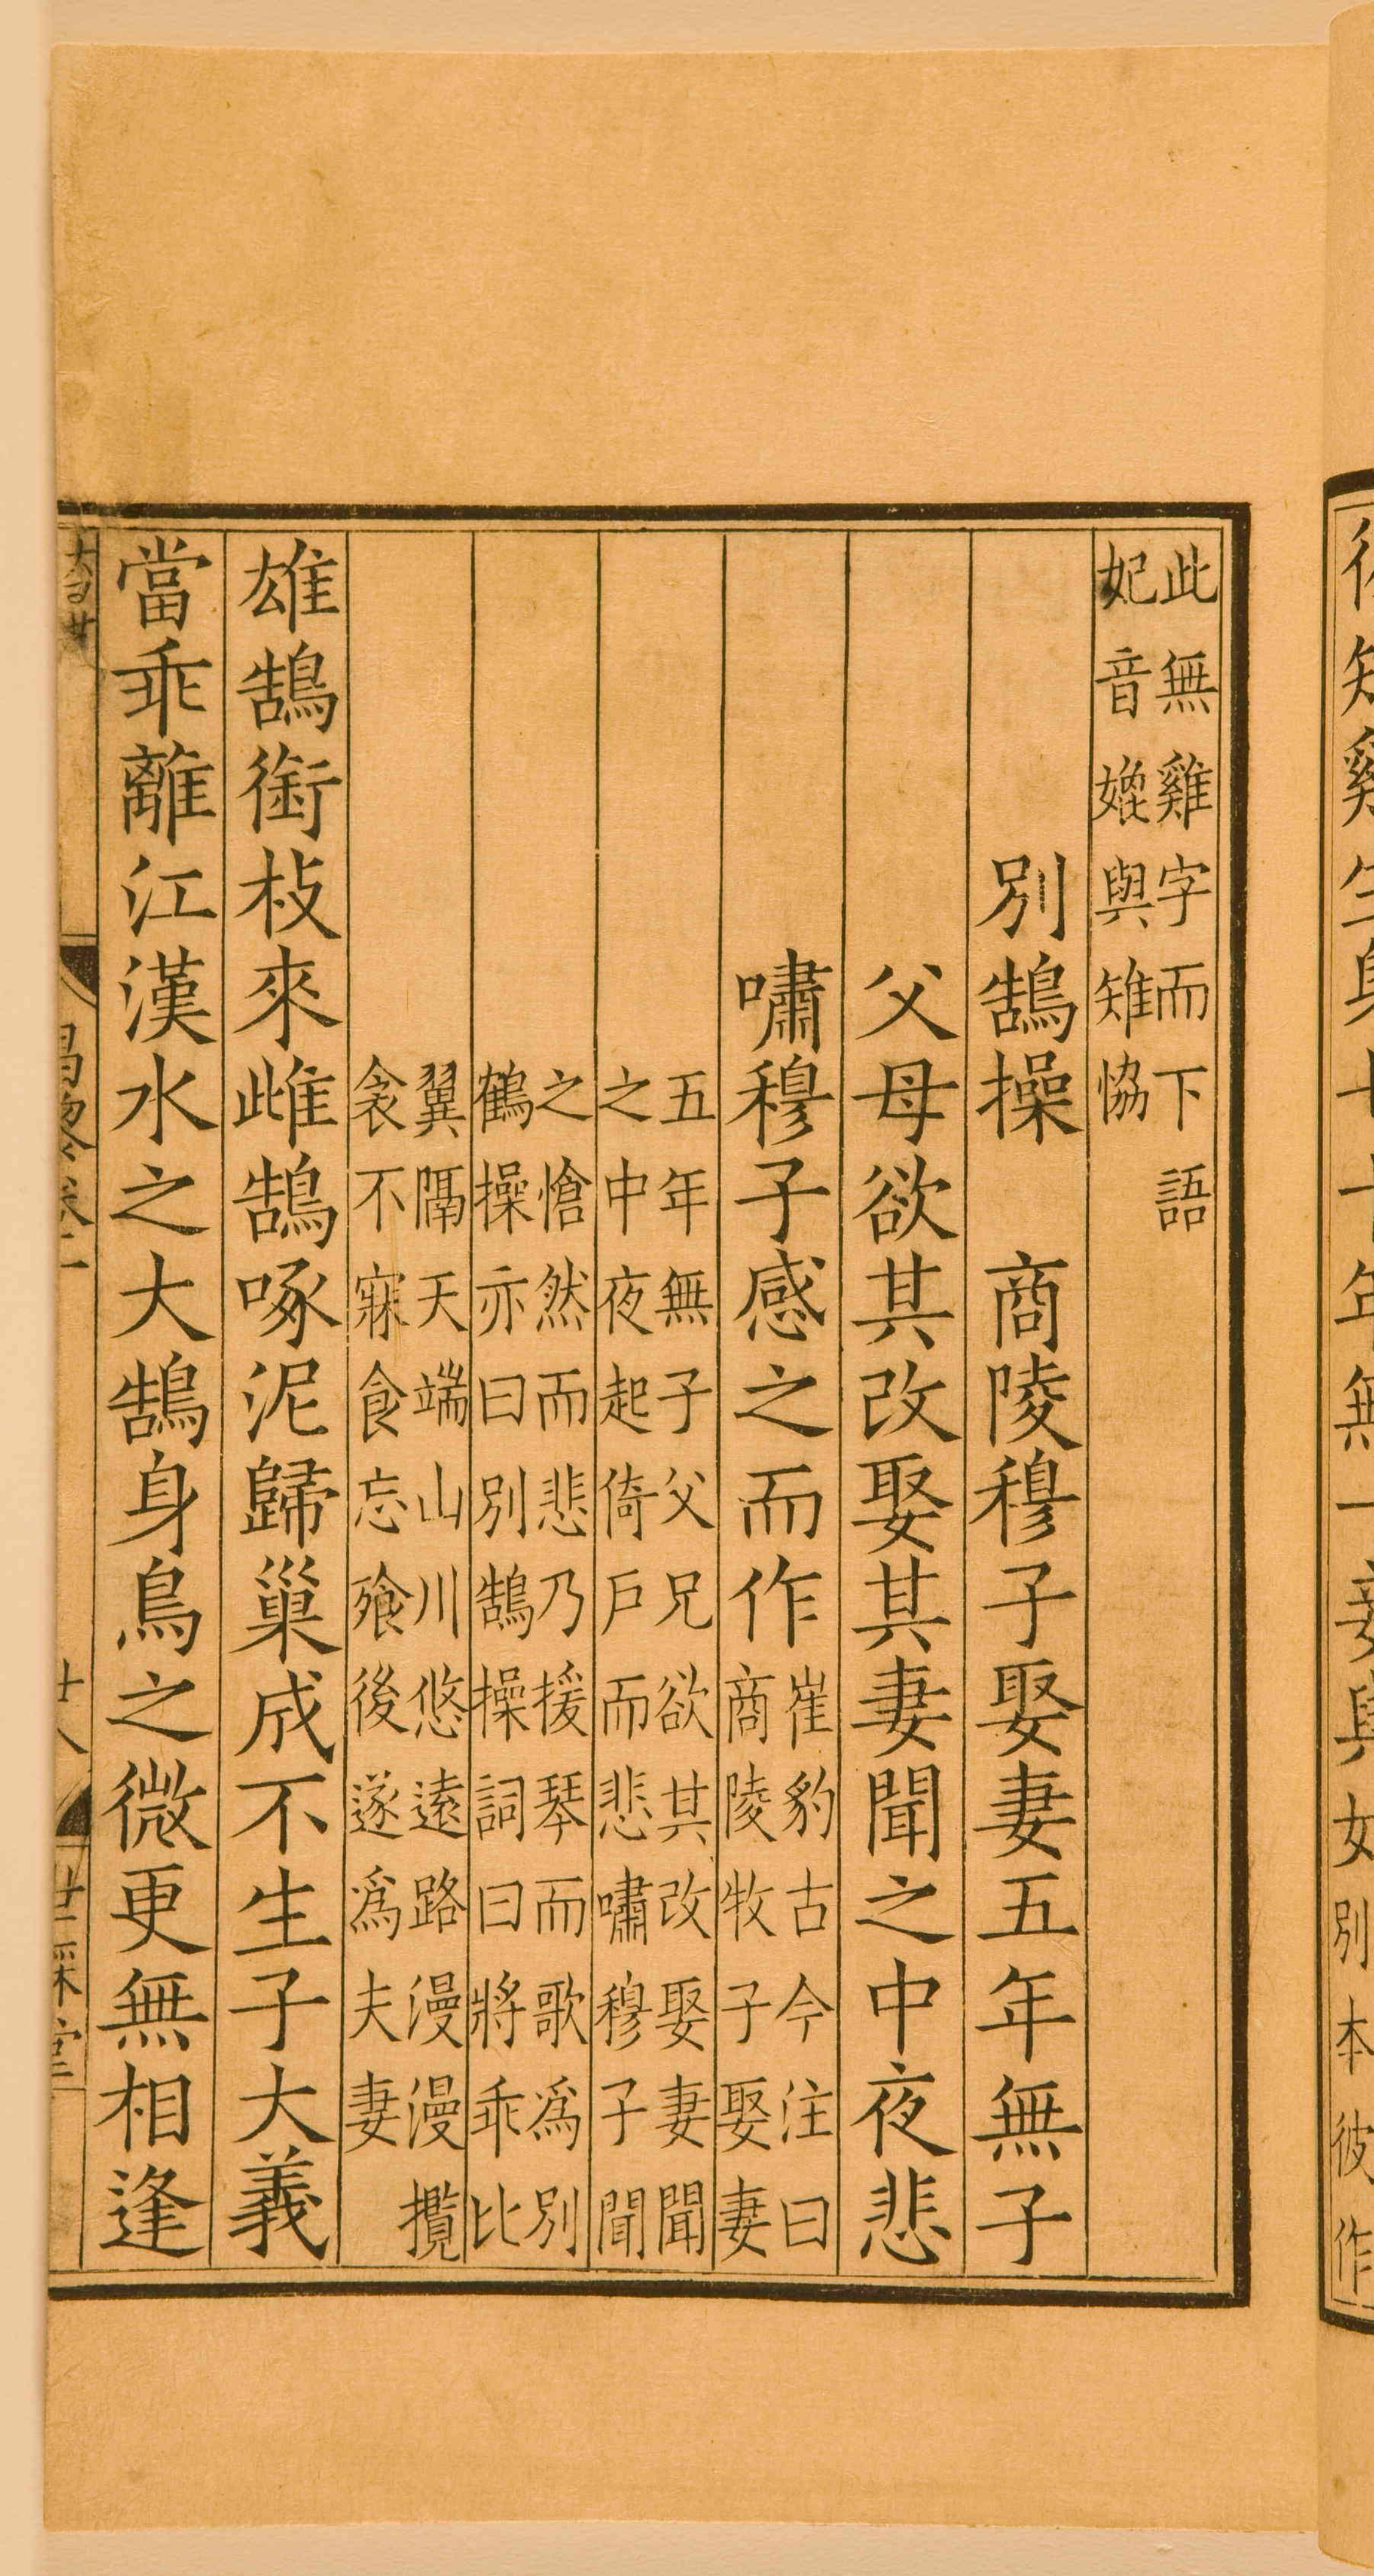 彼雉雞生身七十年無一妾與妃別本彼作
此無雞字而下語
妃音媲與雉協
別鵠操　商陵穆子娶妻五年無子
父母欲其改娶其妻聞之中夜悲
嘯穆子感之而作崔豹古今注曰
商陵牧子娶妻
五年無子父兄欲其改娶妻聞
之中夜起倚戶而悲嘯穆子聞
之愴然而悲乃援琴而歌爲別
鶴操亦曰別鵠操詞曰將乖比
翼隔天端山川悠遠路漫漫攬
衾不寐食忘飱後遂爲夫妻
雄鵠銜枝來雌鵠啄泥歸巢成不生子大義
當乖離江漢水之大鵠身鳥之微更無相逢